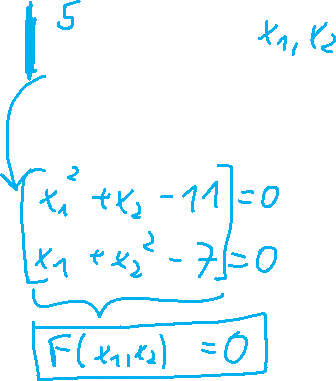 5
x₁, x₂
x₁² + x₂ - 11 = 0
x₁ + x₂² - 7 = 0
F(x₁, x₂) = 0